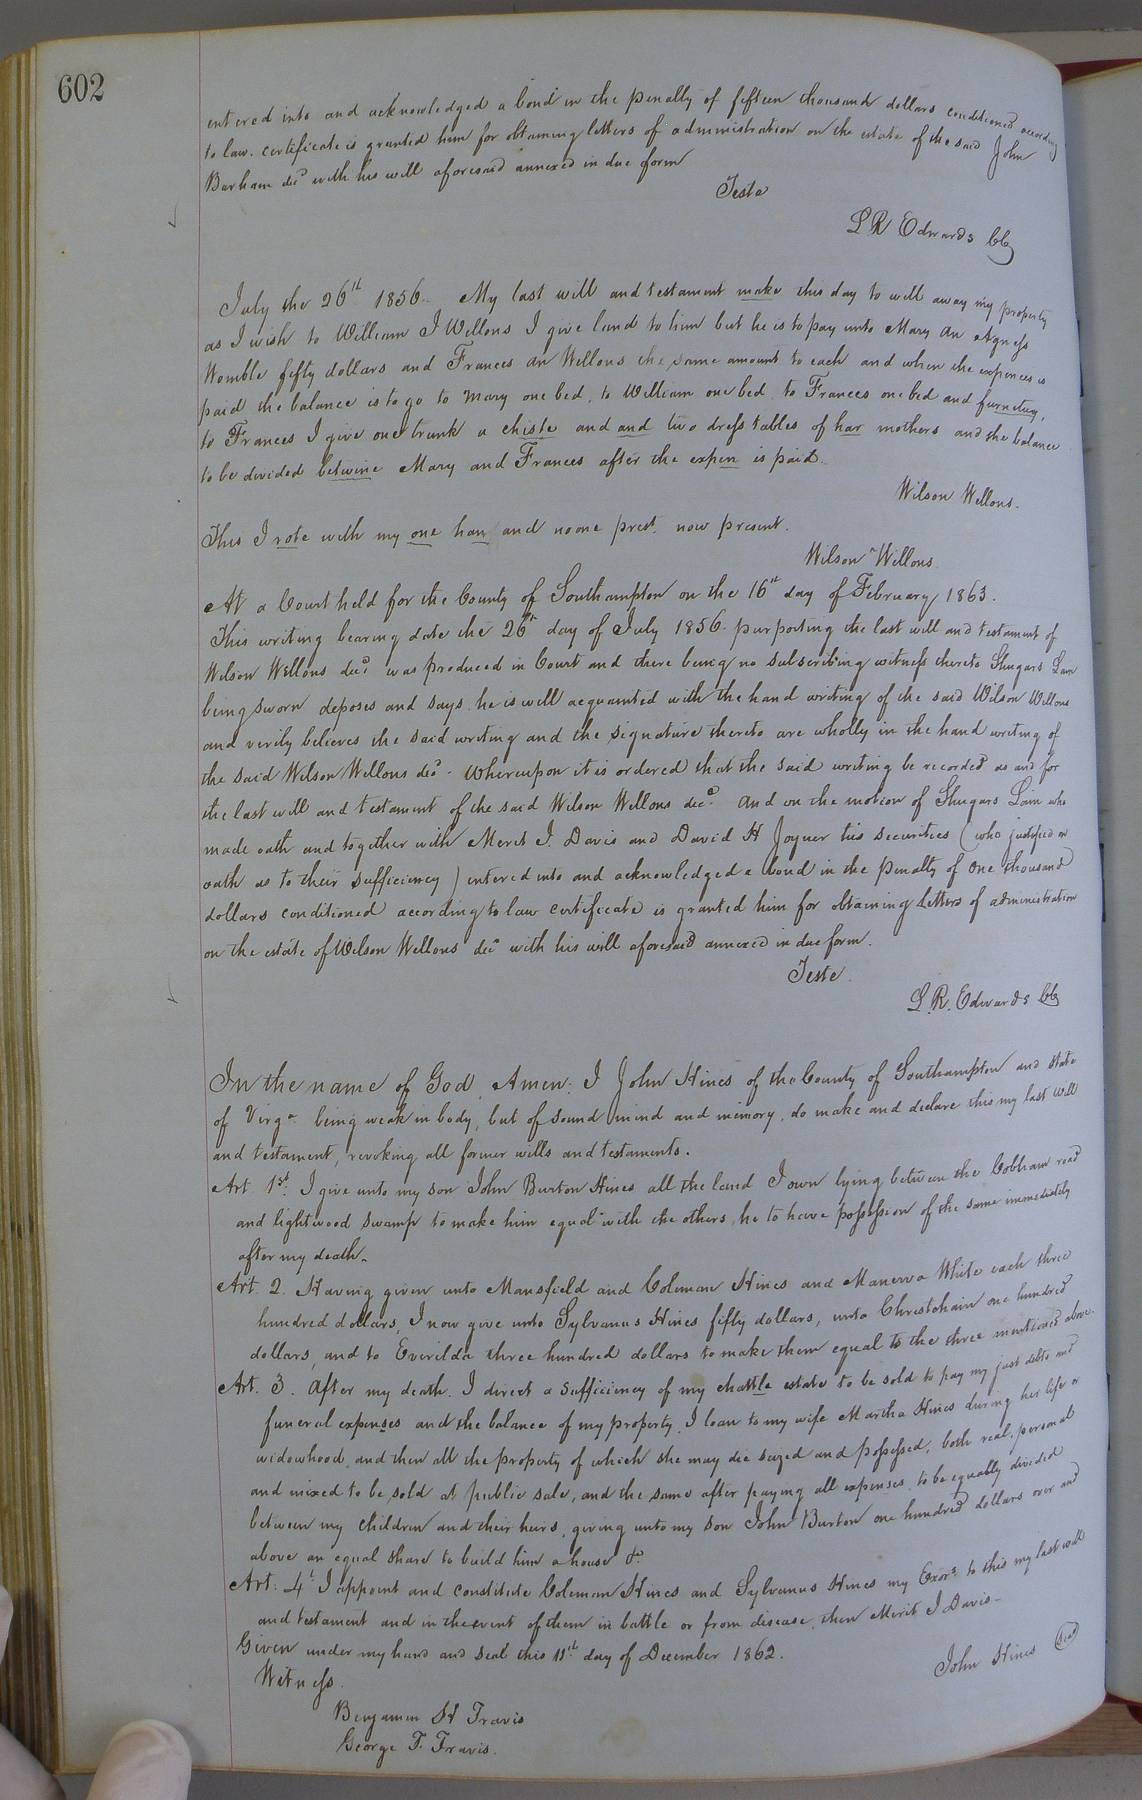 602
entered into and acknowledged a bond in the penalty of fifteen thousand dollars conditioned according
to law. certificate is granted him for obtaining letters of administration on the estate of the said John
Barham decd with his will aforesaid annexed in due form
Teste
L R Edwards Clk
July the 26th 1856. My last will and testament make this day to will away my property
as I wish to William J Wellons I give land to him but he is to pay unto Mary An Agness
Womble fifty dollars and Frances An Wellons the same amount to each and when the expences is
paid the balance is to go to Mary one bed, to William one bed to Frances one bed and furnitury,
to Frances I give one trunk a chiste and and two dress tables of har mothers and the balance
to be divided betwine Mary and Frances after the expen is paid.
Wilson Wellons.
This I rote with my one han and no one prest. now present.
Wilson Willons.
At a Court held for the County of Southampton on the 16th day of February 1863.
This writing bearing date the 26th day of July 1856. purporting the last will and testament of
Wilson Wellons decd was produced in Court and there being no subscribing witness thereto Shugars Lain
being sworn deposes and says he is well acquainted with the hand writing of the said Wilson Wellons
and verily believes the said writing and the signature thereto are wholly in the hand writing of
the said Wilson Wellons decd. Whereupon it is ordered that the said writing be recorded as and for
the last will and testament of the said Wilson Wellons decd. And on the motion of Shugars Lain who
made oath and together with Merit J. Davis and David H Joyner his securities (who justified on
oath as to their sufficiency) entered into and acknowledged a bond in the penalty of One thousand
dollars conditioned according to law certificate is granted him for obtaining letters of administration
on the estate of Wilson Wellons decd with his will aforesaid annexed in due form.
Teste.
L. R. Edwards Clk
In the name of God, Amen: I John Hines of the County of Southampton and state
of Virga. being weak in body, but of sound mind and memory, do make and declare this my last will
and testament, revoking all former wills and testaments.
Art. 1st. I give unto my son John Burton Hines all the land I own lying between the Cobham road
and lightwood swamp to make him equal with the others, he to have possession of the same immediately
after my death.
Art. 2. Having given unto Mansfield and Coleman Hines and Manerva White each three
hundred dollars, I now give unto Sylvanus Hines fifty dollars, unto Christchain one hundred
dollars, and to Everilda three hundred dollars to make them equal to the three mentioned above.
Art. 3. After my death. I direct a sufficiency of my chattle estate to be sold to pay my just debts and
funeral expenses and the balance of my property, I loan to my wife Martha Hines during her life or
widowhood, and then all the property of which she may die seized and possessed, both real, personal
and mixed to be sold at public sale, and the same after paying all expenses, to be equally divided
between my children and their heirs, giving unto my son John Burton one hundred dollars over and
above an equal share to build him a house &c.
Art: 4t. I appoint and constitute Coleman Hines and Sylvanus Hines my Exors. to this my last will
and testament and in the event of them in battle or from disease, then Merit J Davis.
Given under my hand and seal this 11th day of December 1862.
John Hines Seal
Witness.
Benjamin H Travis
George F. Travis.